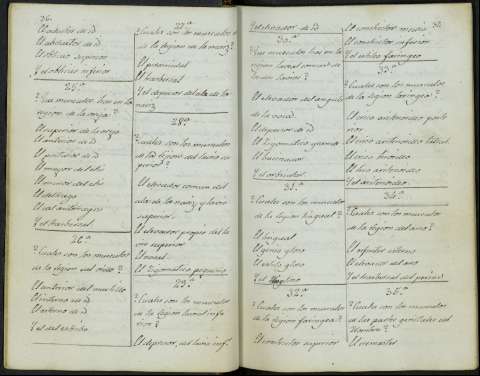 36.
El aductor de id
El abductor de id
El obliquo superior
Y el obliquo inferior
25.ª
¿Que musculos hai en la
region de la oreja?
El superior de la oreja
El anterior de id
El posterior de id
El mayor del
El menor del
El del trago
El del antitrago
Y el transversal
26.ª
¿Cuales son los musculos
de la region del oido?
El anterior del martillo
El interno de id
El externo de id
Y el del estribo
27.ª
¿Cuales son los musculos
de la region de la nariz?
El piramidal
El transversal
Y el depresor del ala de la
nariz
28.ª
¿Cuales son los musculos
de la region del labio su-
perior?
El elevador comun del
ala de la nariz y labio
superior
El elevador propio del la-
bio superior
El canino
El zigomatico pequeño
29.ª
¿Cuales son los musculos
de la region labial infe-
rior?
El depresor del labio inf.
Y el elevador de id
30.ª
¿Que musculos hai en la
region labial comun de
los labios?
El elevador del angulo
de la boca
El depresor de id
El zigomatico grande
El buccinador
Y el orbicular
31.ª
¿Cuales son los musculos
de la region lingual?
El lingual
El genio gloso
El estilo gloso
Y el hiogloso
32.ª
¿Cuales son los musculos
de la region faringea?
El constrictor superior
El constrictor medio
El constrictor inferior
Y el estilo faringeo
33.ª
¿Cuales son los musculos
de la region laringea?
El crico aritenoideo poste-
rior
El crico aritenoideo lateral
El crico tiroideo
El tiro aritenoideo
Y el aritenoideo
34.ª
¿Cuales son los musculos
de la region del ano?
El esfinter externo
El elevador del ano
Y el transversal del perineo
35.ª
¿Cuales son los musculos
de las partes genitales del
hombre?
El cremaster